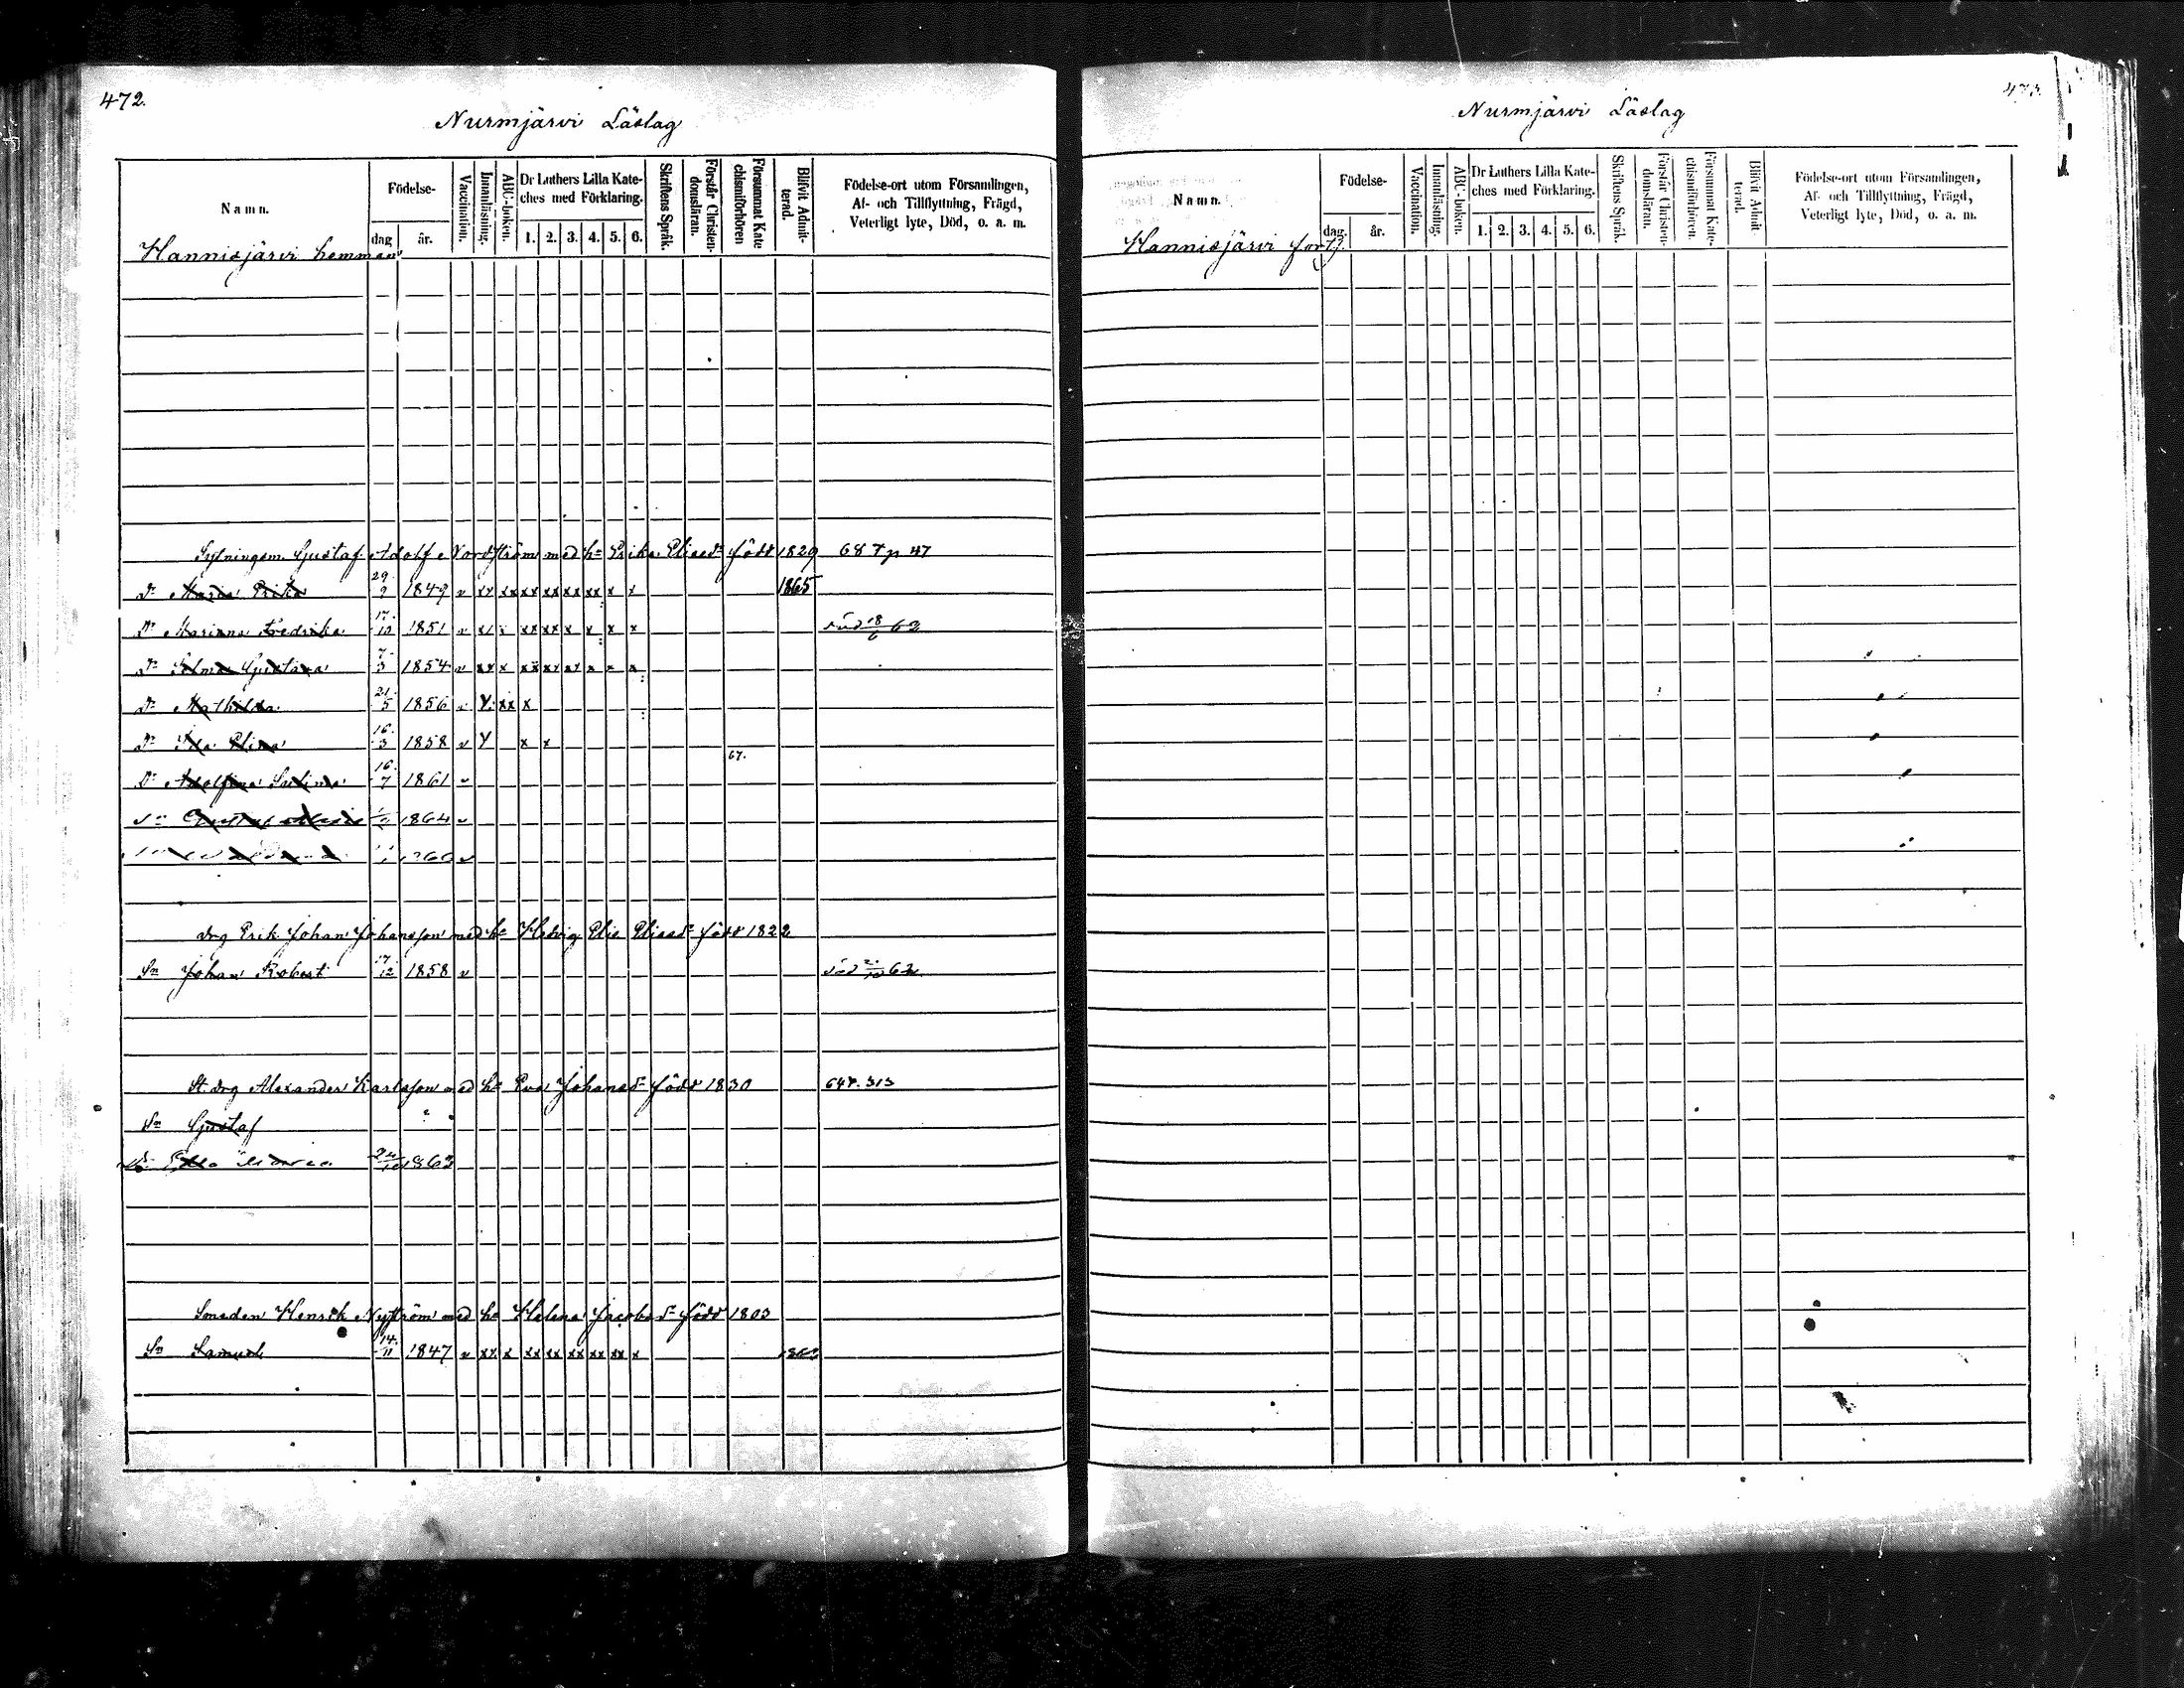 472.
Nurmjärvi Läslag
Namn.
Födelse-
dag
år.
Vaccination.
Innanläsning.
ABC-boken.
Dr Luthers Lilla Kate-
ches med Förklaring.
1. 2. 3. 4. 5. 6.
Skriftens Språk.
Förstår Christen-
domsläran.
Försummat Kate
chismiförhören
Blifvit Admit-
terad.
Födelse-ort utom Församlingen,
Af- och Tillflyttning, Frägd,
Veterligt lyte, Död, o. a. m.
Hannisjärvi hemman
Sytningsm. Gustaf Adolf Nordström med h= Erika Eliasd= född 1829 68 T p 47
Dr Maria Erika 29/9 1849 v xx xx xx xx xx xx x x 1865
Dr Mariana Fredrika 17/10 1851 v xx x xx xx x x x x död 18/6 62
Dr Selma Gustava 7/3 1854 v xx x xx xx xx x x x
Dr Mathilda 21/5 1856 v Y xx x
Dr Ida Elina 16/3 1858 v Y x x
67.
Dr Adolfina 16/7 1861 v
Sn 1864 v
v
drg Erik Johan Johansson med h= Hedvig Elis Eliasd= född 1822
Sn Johan Robert 17/12 1858 v död 62
St. drg Alexander Karlsson med h= Eva Johansd= född 1830 64 313
Sn Gustaf
Dr Maria 1863
Smeden Henrik Nyström med h= Helena Jacobsd= född 1803
Sn Samuel 14/11 1847 v xx x xx xx xx xx xx x
Nurmjärvi Läslag
Namn.
Födelse-
dag.
år.
Vaccination.
Innanläsning.
ABC-boken.
Dr Luthers Lilla Kate-
ches med Förklaring.
1. 2. 3. 4. 5. 6.
Skriftens Språk.
Förstår Christen-
domsläran.
Försummat Kate-
chismiförhören.
Blifvit Admit-
terad.
Födelse-ort utom Församlingen,
Af- och Tillflyttning, Frägd,
Veterligt lyte, Död, o. a. m.
Hannisjärvi forts.